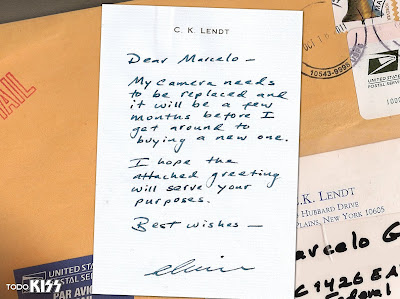 C. K. LENDT
Dear Marcelo —
My camera needs
to be replaced and
it will be a few
months before I
get around to
buying a new one.
I hope the
attached greeting
will serve your
purposes.
Best wishes —
AIL
OCT 1
10543-9998
UNITED STA
POSTAL SERVI
1000
.K. LENDT
HUBBARD DRIVE
PLAINS, NEW YORK 10605
arcelo G
C1426EA
Federal
UNITED STATES
POSTAL SERVICE
PAR AVION
TODO KISS